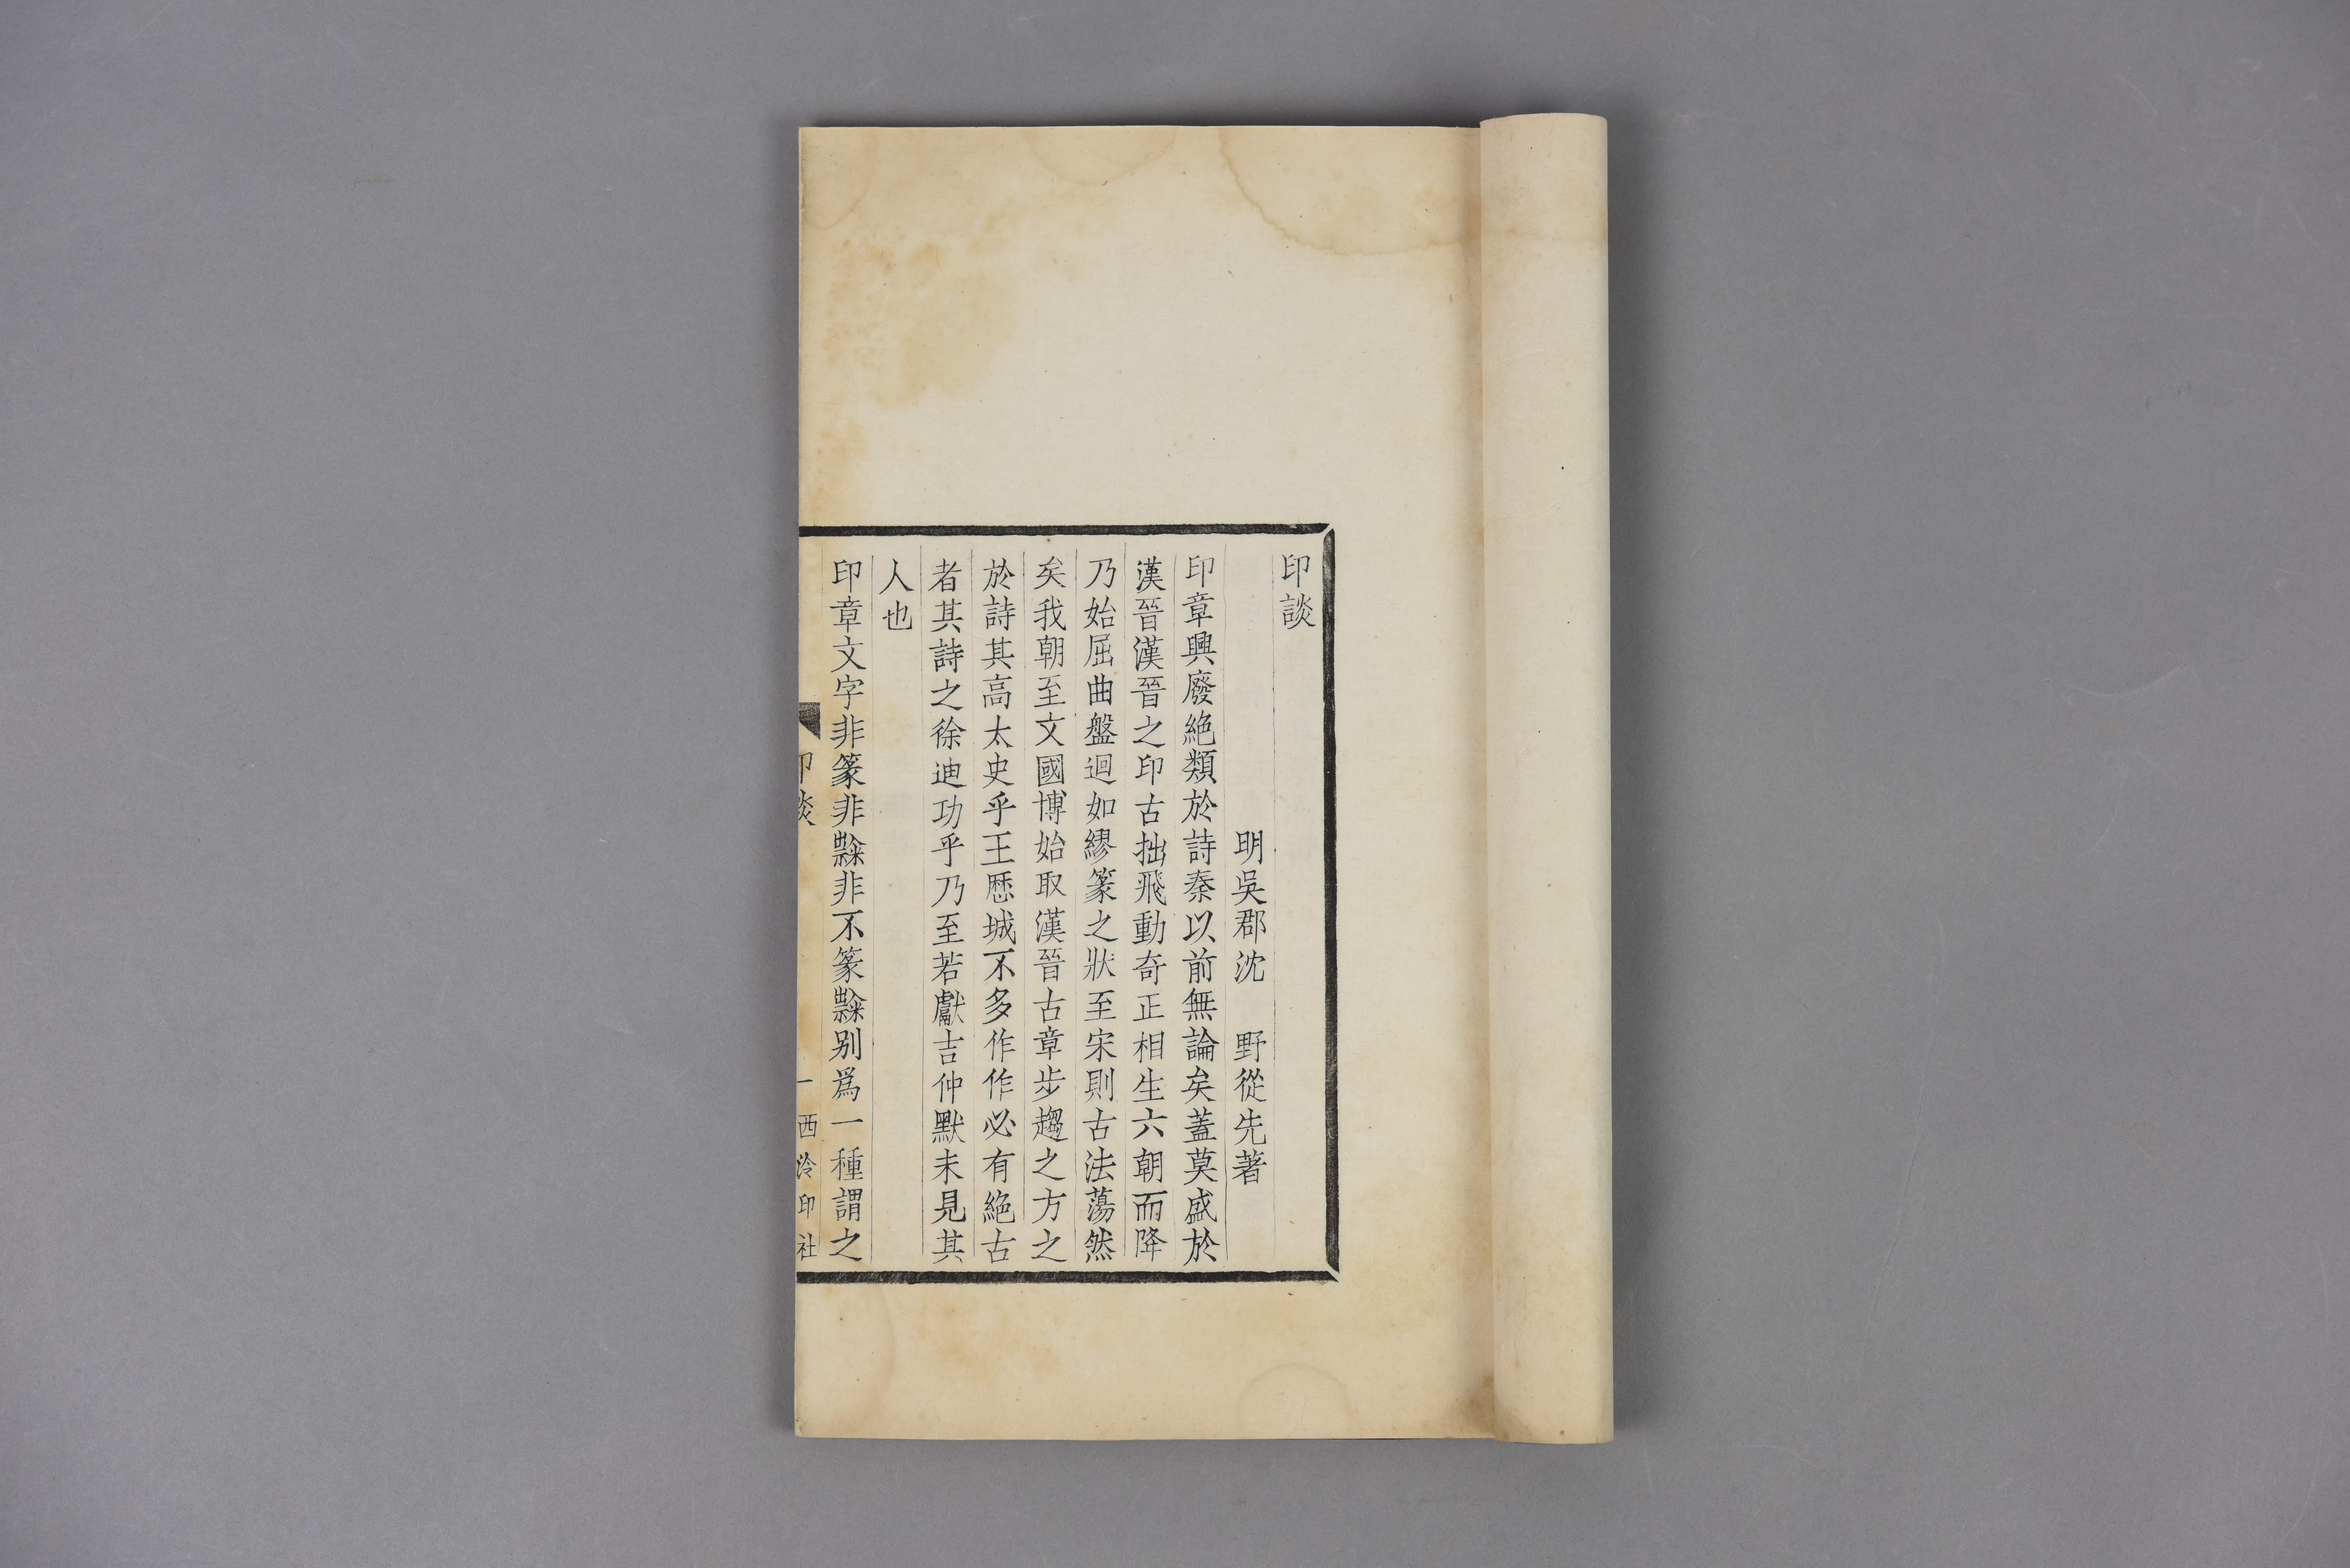 印談
明吳郡沈　野從先著
印章興廢絶類於詩秦以前無論矣蓋莫盛於
漢晉漢晉之印古拙飛動奇正相生六朝而降
乃始屈曲盤迴如繆篆之狀至宋則古法蕩然
矣我朝至文國博始取漢晉古章步趨之方之
於詩其高太史乎王厯城不多作作必有絶古
者其詩之徐迪功乎乃至若獻吉仲默未見其
人也
印章文字非篆非隸非不篆隸別爲一種謂之
印談
一
西泠印社